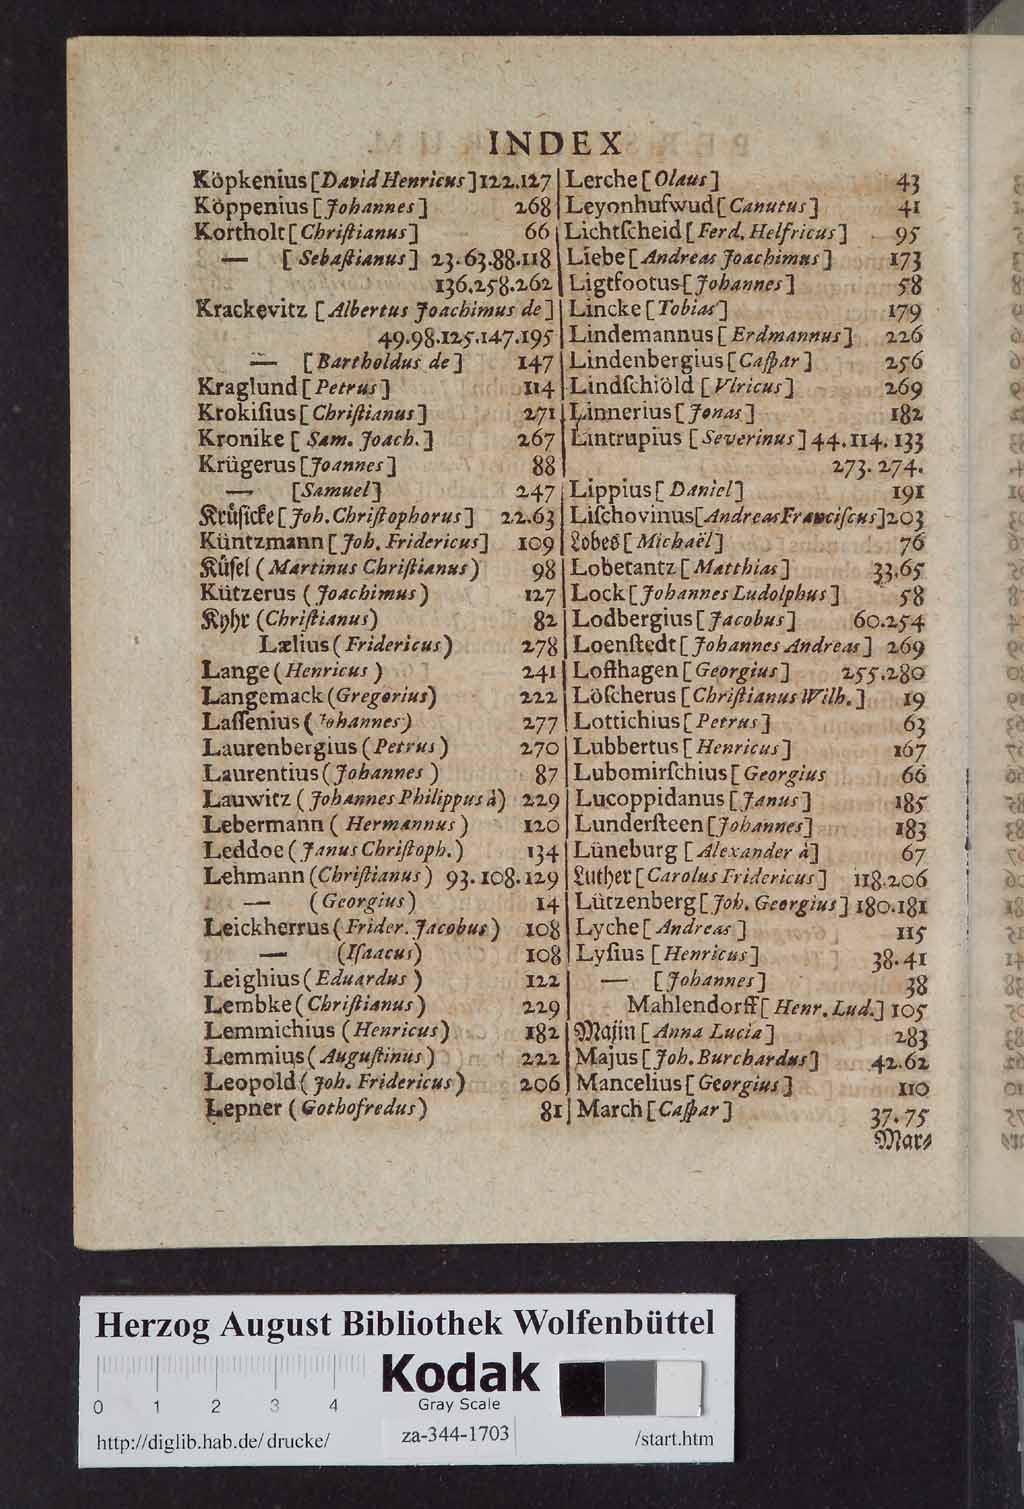 INDEX
Köpkenius [David Henricus] 122.127
Köppenius [Johannes] 268
Kortholt [Chriſtianus] 66
— [Sebaſtianus] 23.63.88.118
136.258.262
Krackevitz [Albertus Joachimus de]
49.98.125.147.195
— [Bartholdus de] 147
Kraglund [Petrus] 114
Krokiſius [Chriſtianus] 271
Kronike [Sam. Joach.] 267
Krügerus [Joannes] 88
— [Samuel] 247
Krüſicke [Joh. Chriſtophorus] 22.63
Küntzmann [Joh. Fridericus] 109
Küſel (Martinus Chriſtianus) 98
Kützerus (Joachimus) 127
Kyhr (Chriſtianus) 82
Lælius (Fridericus) 278
Lange (Henricus) 241
Langemack (Gregorius) 222
Laſſenius (Johannes) 277
Laurenbergius (Petrus) 270
Laurentius (Johannes) 87
Lauwitz (Johannes Philippus à) 229
Lebermann (Hermannus) 120
Leddoe (Janus Chriſtoph.) 134
Lehmann (Chriſtianus) 93.108.129
— (Georgius) 14
Leickherrus (Frider. Jacobus) 108
— (Iſaacus) 108
Leighius (Eduardus) 122
Lembke (Chriſtianus) 229
Lemmichius (Henricus) 182
Lemmius (Auguſtinus) 222
Leopold (Joh. Fridericus) 206
Lepner (Gothofredus) 81
Lerche [Olaus] 43
Leyonhufwud [Canutus] 41
Lichtſcheid [Ferd. Helfricus] 95
Liebe [Andreas Joachimus] 173
Ligtfootus [Johannes] 58
Lincke [Tobias] 179
Lindemannus [Erdmannus] 226
Lindenbergius [Caſpar] 256
Lindſchiöld [Vlricus] 269
Linnerius [Jonas] 182
Lintrupius [Severinus] 44.114.133
273.274.
Lippius [Daniel] 191
Liſchovinus [Andreas Franciſcus] 203
Lobes [Michaël] 76
Lobetantz [Matthias] 33.65
Lock [Johannes Ludolphus] 58
Lodbergius [Jacobus] 60.254
Loenſtedt [Johannes Andreas] 269
Loſthagen [Georgius] 255.280
Löſcherus [Chriſtianus Wilh.] 19
Lottichius [Petrus] 63
Lubbertus [Henricus] 167
Lubomirſchius [Georgius 66
Lucoppidanus [Janus] 185
Lunderſteen [Johannes] 183
Lüneburg [Alexander à] 67
Luther [Carolus Fridericus] 118.206
Lützenberg [Joh. Georgius] 180.181
Lyche [Andreas] 115
Lyſius [Henricus] 38.41
— [Johannes] 38
Mahlendorff [Henr. Lud.] 105
Majin [Anna Lucia] 283
Majus [Joh. Burchardus] 42.62
Mancelius [Georgius] 110
March [Caſpar] 37.75
Mar⸗
Herzog August Bibliothek Wolfenbüttel
Kodak
Gray Scale
0 1 2 3 4
http://diglib.hab.de/drucke/ za-344-1703 /start.htm